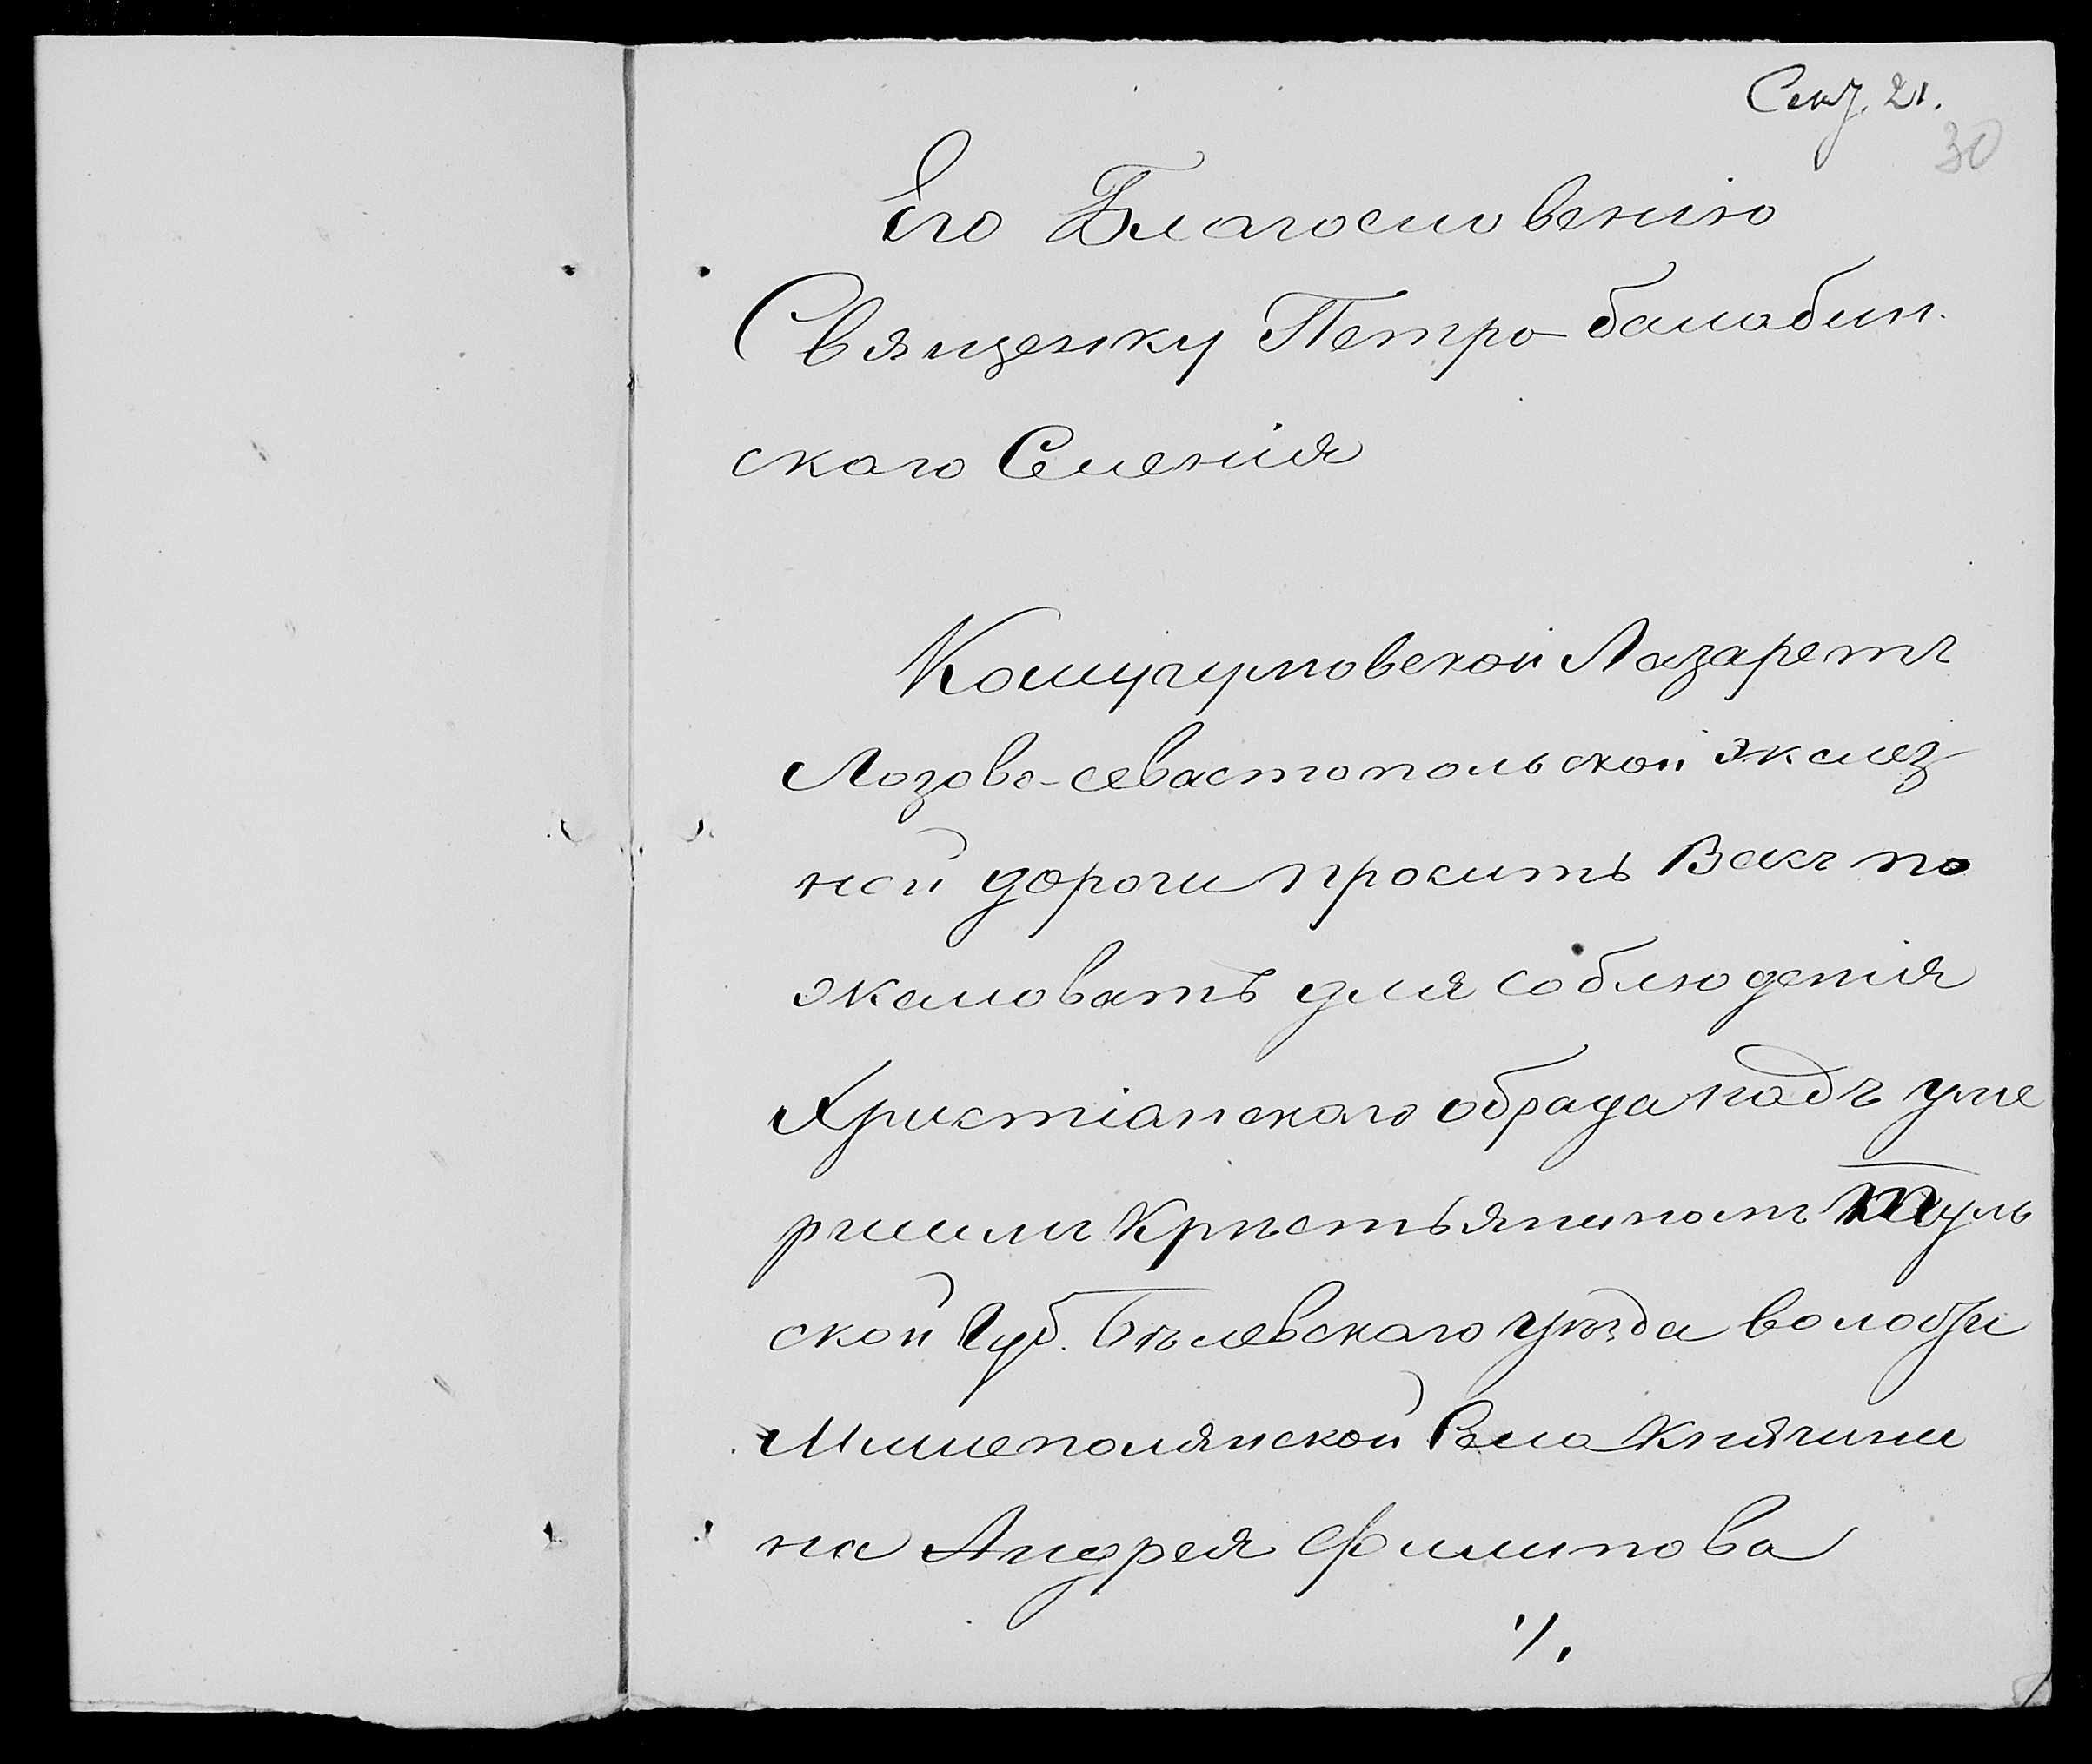 Сен. 21.
30
Его Благословению
Священку Петро-балабин.
скаго Селенія
Кошугумовской Лазаретъ
Лозово-севастопольской желез
ной дороги проситъ Васъ по
жаловатъ для соблюденія
Христіанскаго обрада надъ уме
ршимъ Крѣстьяниномъ Туль
ской Губ. Бѣлевскаго уѣзда волости
Мишеполянской Села Княгини
на Андрея Филипова
·/.